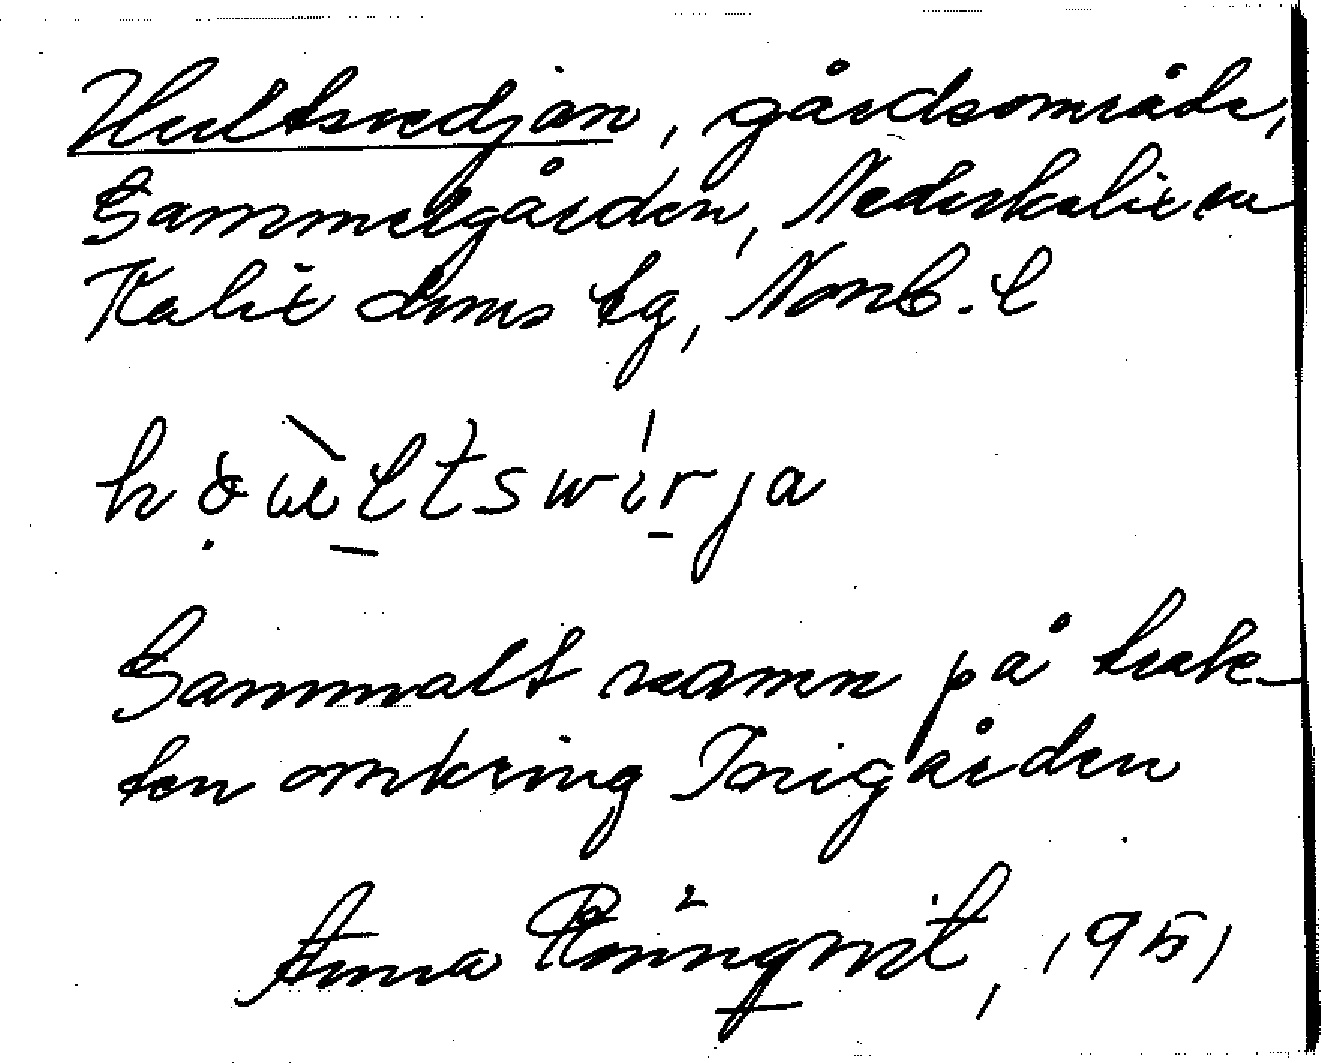 Hultsvedjan, gårdsområde,
Gammelgården, Nederkalix sn
Kalix dms tg, Norrb. l
Gammalt namn på trak-
ten omkring Torigården
Anna Rönnqvist, 1951